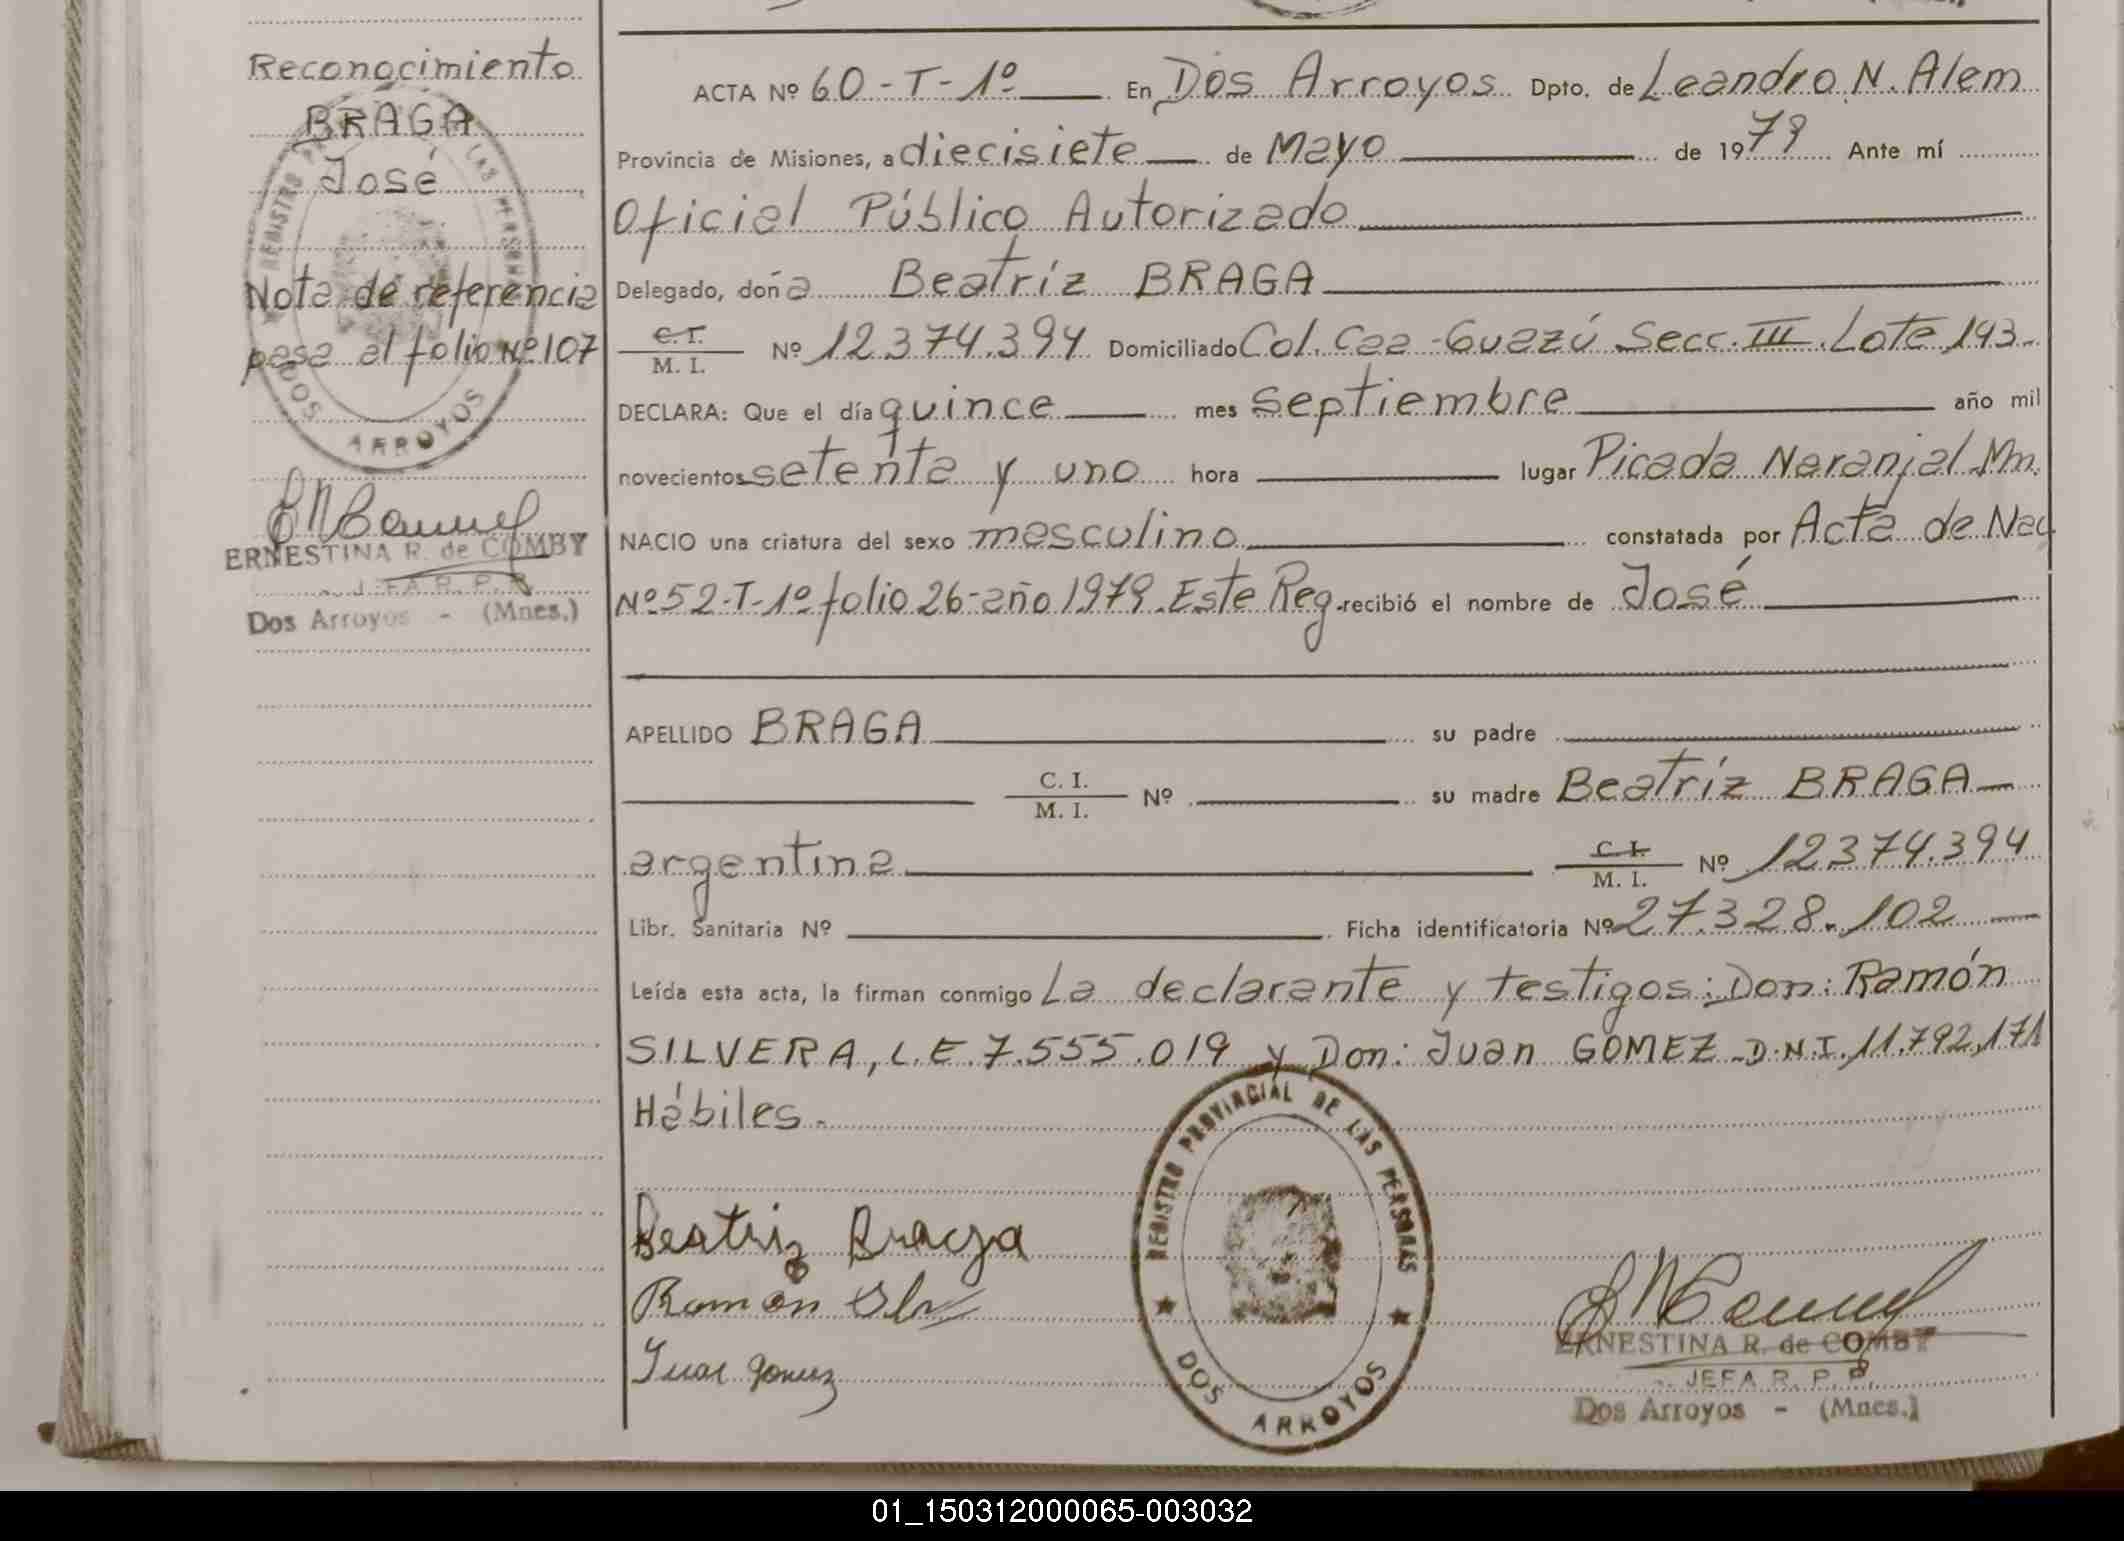 Reconocimiento
BRAGA
José
Nota de referencia
pasa al folio Nº 107
REGISTRO PROVINCIAL DE LAS PERSONAS
DOS ARROYOS
ERNESTINA R. de COMBY
JEFA R. P. P.
Dos Arroyos - (Mnes.)
ACTA Nº 60-T-1º En Dos Arroyos Dpto. de Leandro N. Alem
Provincia de Misiones, a diecisiete de Mayo de 1979 Ante mí
Oficial Público Autorizado
Delegado, doña Beatríz BRAGA
C.I. / M. I. Nº 12.374.394 Domiciliado Col. Caa-Guazú Secc. III. Lote 193-
DECLARA: Que el día quince mes septiembre año mil
novecientos setenta y uno hora lugar Picada Naranjal Mn.
NACIO una criatura del sexo masculino constatada por Acta de Nac
Nº 52-T-1º folio 26-año 1979. Este Reg. recibió el nombre de José
APELLIDO BRAGA su padre
C. I. / M. I. Nº su madre Beatríz BRAGA
argentina C. I. / M. I. Nº 12.374.394
Libr. Sanitaria Nº Ficha identificatoria Nº 27.328.102
Leída esta acta, la firman conmigo La declarante y testigos: Don: Ramón
SILVERA, L.E. 7.555.019 y Don: Juan GOMEZ-D.N.I. 11.792.171
Hábiles.-
REGISTRO PROVINCIAL DE LAS PERSONAS
DOS ARROYOS
Beatriz Braga
Ramon
Juan gomez
ERNESTINA R. de COMBY
JEFA R. P. P.
Dos Arroyos - (Mnes.)
01_150312000065-003032